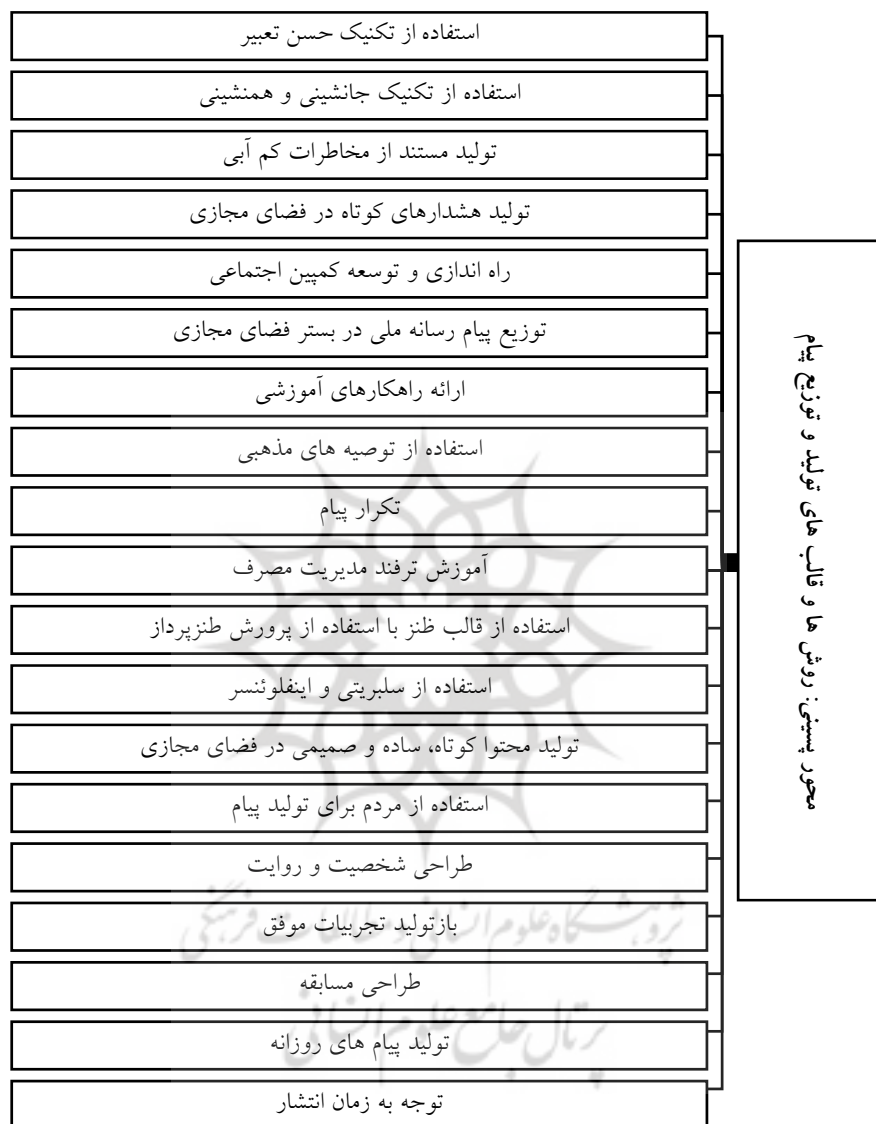 محور پسینی: روش ها و قالب های تولید و توزیع پیام
استفاده از تکنیک حسن تعبیر
استفاده از تکنیک جانشینی و همنشینی
تولید مستند از مخاطرات کم آبی
تولید هشدارهای کوتاه در فضای مجازی
راه اندازی و توسعه کمپین اجتماعی
توزیع پیام رسانه ملی در بستر فضای مجازی
ارائه راهکارهای آموزشی
استفاده از توصیه های مذهبی
تکرار پیام
آموزش ترفند مدیریت مصرف
استفاده از قالب طنز با استفاده از پرورش طنزپرداز
استفاده از سلبریتی و اینفلوئنسر
تولید محتوا کوتاه، ساده و صمیمی در فضای مجازی
استفاده از مردم برای تولید پیام
طراحی شخصیت و روایت
بازتولید تجربیات موفق
طراحی مسابقه
تولید پیام های روزانه
توجه به زمان انتشار
پژوهشگاه علوم انسانی و مطالعات فرهنگی
پرتال جامع علوم انسانی